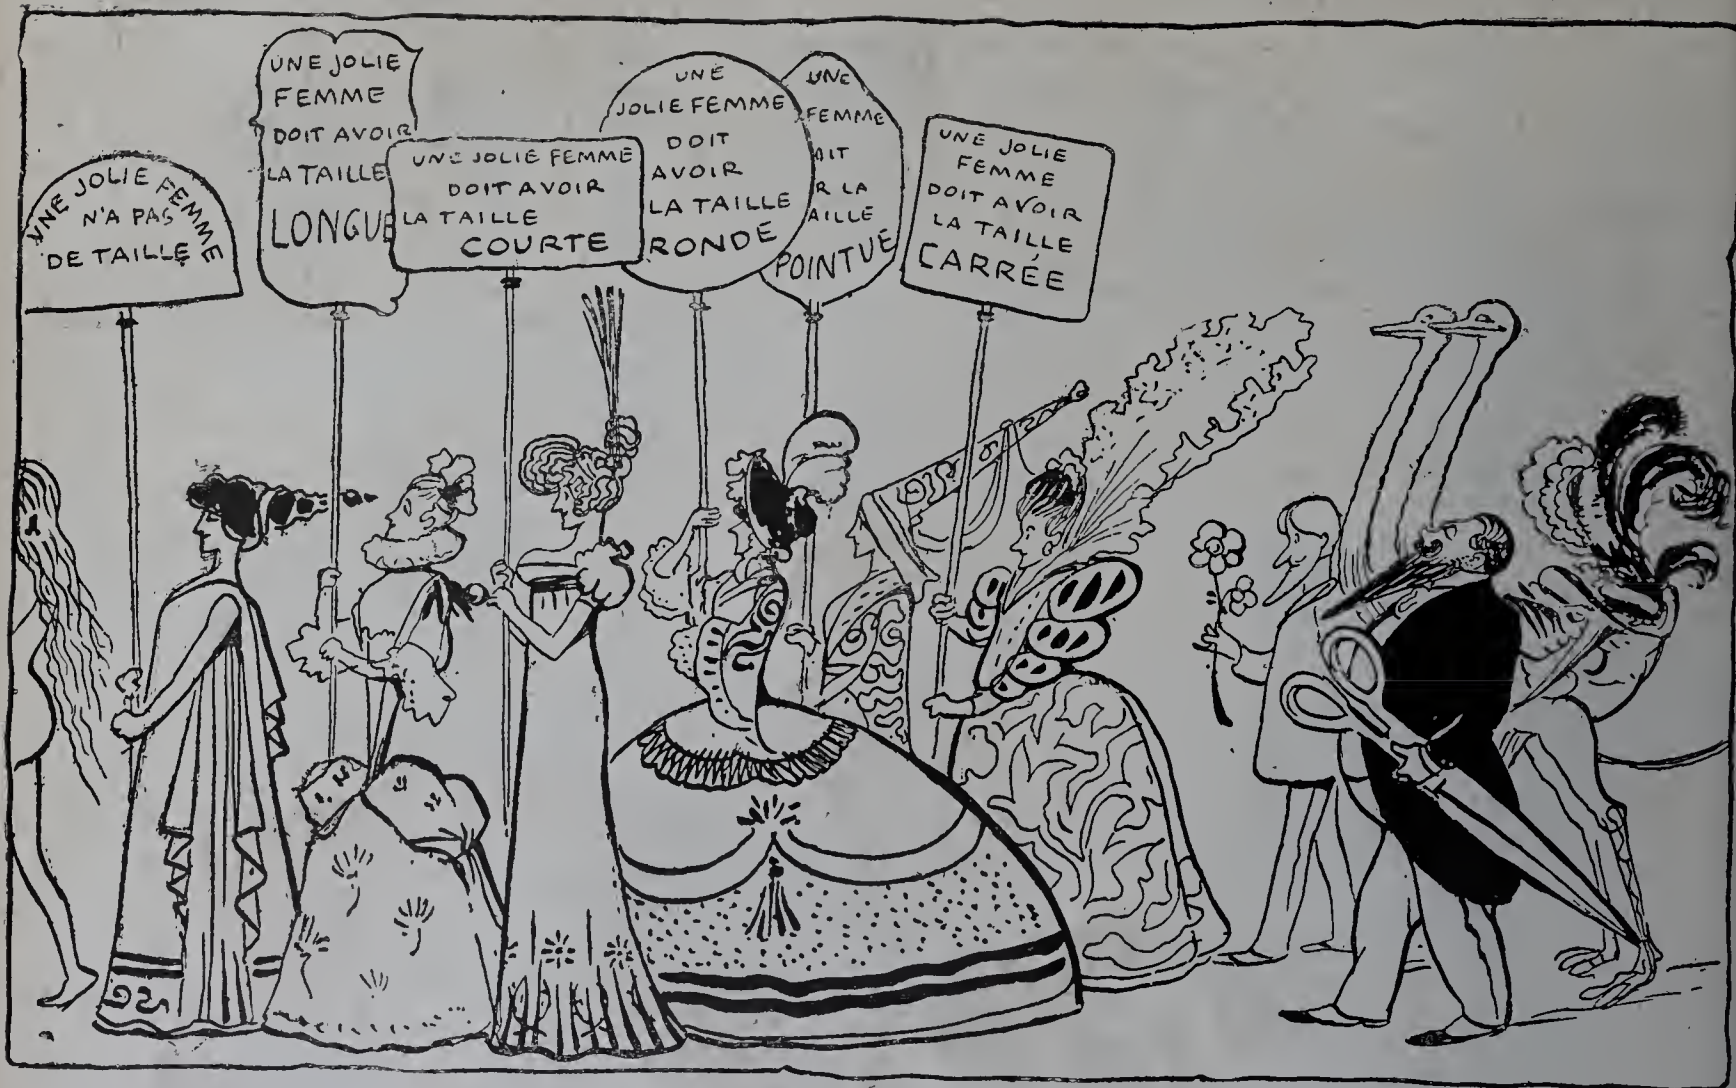 UNE JOLIE FEMME
N'A PAS
DE TAILLE
UNE JOLIE
FEMME
DOIT AVOIR
LA TAILLE
LONGUE
UNE JOLIE FEMME
DOIT AVOIR
LA TAILLE
COURTE
UNE
JOLIE FEMME
DOIT
AVOIR
LA TAILLE
RONDE
UNE
FEMME
OIT
R LA
AILLE
POINTUE
UNE JOLIE
FEMME
DOIT AVOIR
LA TAILLE
CARRÉE